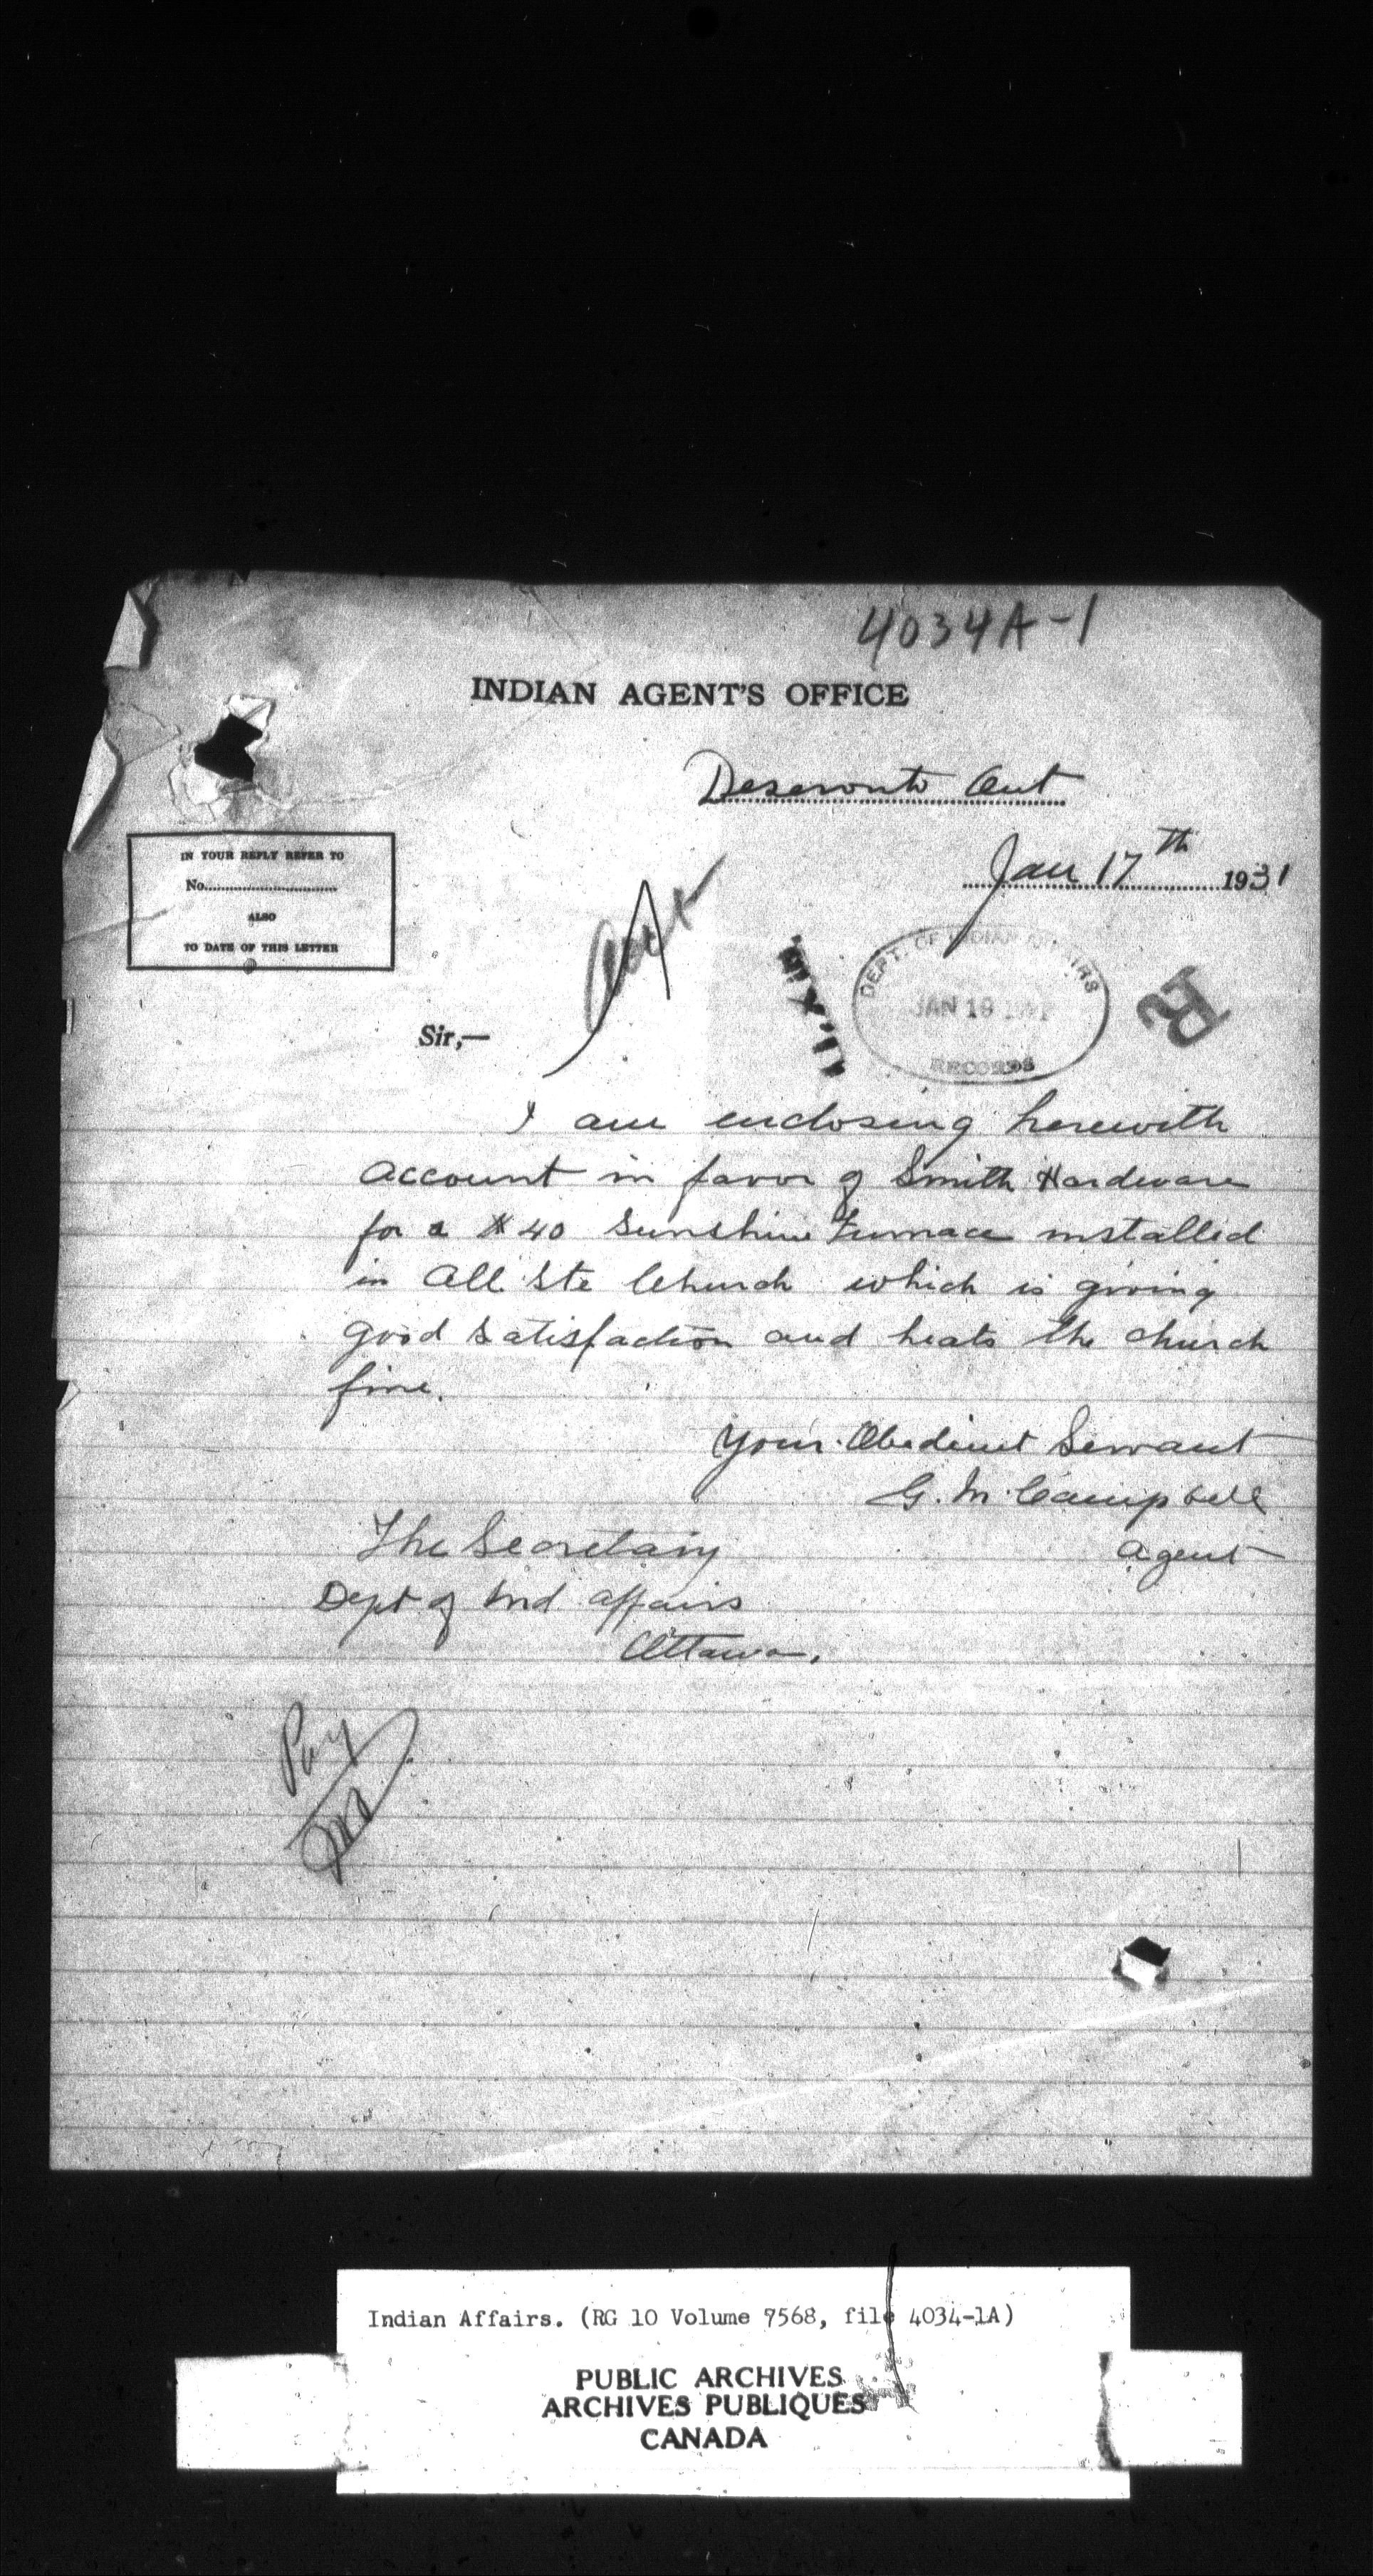 4034A-1
INDIAN AGENT'S OFFICE
Deseronto Ont
Jan 17th 1931
IN YOUR REPLY REFER TO
No.
ALSO
TO DATE OF THIS LETTER
DEPT. OF INDIAN AFFAIRS
JAN 19 1931
RECORDS
Sir,—
I am enclosing herewith
account in favor of Smith Hardware
for a #40 Sunshine Furnace installed
in All Sts Church which is giving
good satisfaction and heats the church
fine.
Your Obedient Servant
G. M. Campbell
Agent
The Secretary
Dept of Ind Affairs
Ottawa.
Pay
Indian Affairs. (RG 10 Volume 7568, file 4034-1A)
PUBLIC ARCHIVES
ARCHIVES PUBLIQUES
CANADA